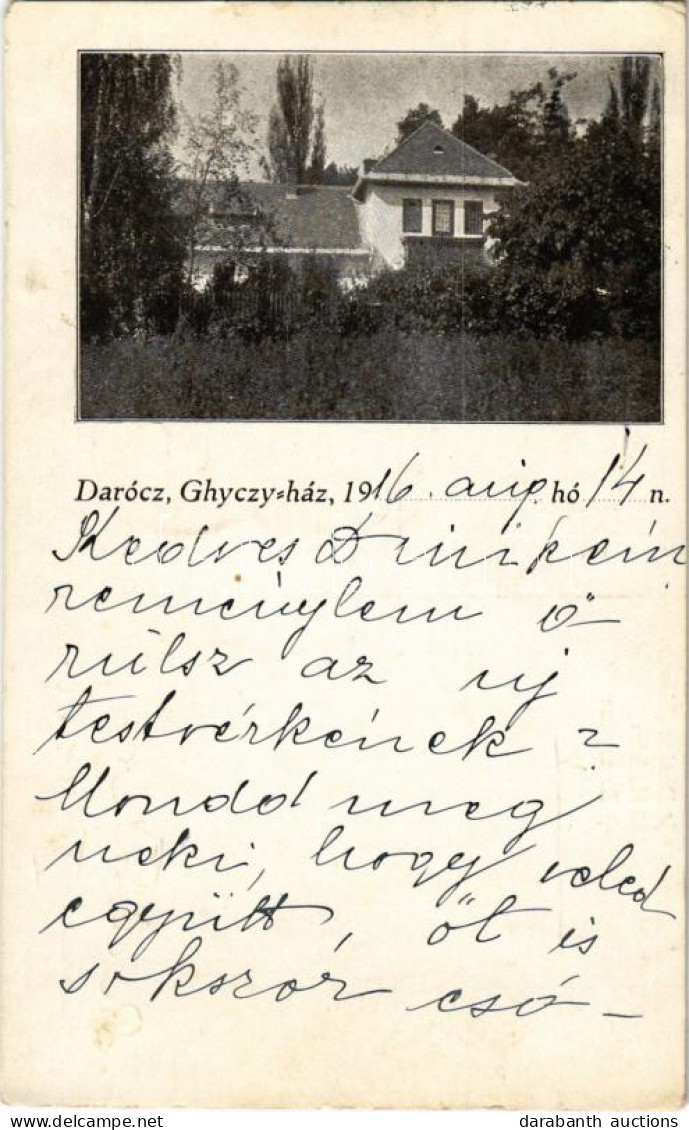 Darócz, Ghyczy-ház, 1916. aug. hó 14 n.
Kedves Dinikém
reménylem ö-
rülsz az uj
testvérkének?
Mondd meg
neki, hogy veled
együtt, öt is
sokszor csó-
darabanth auctions